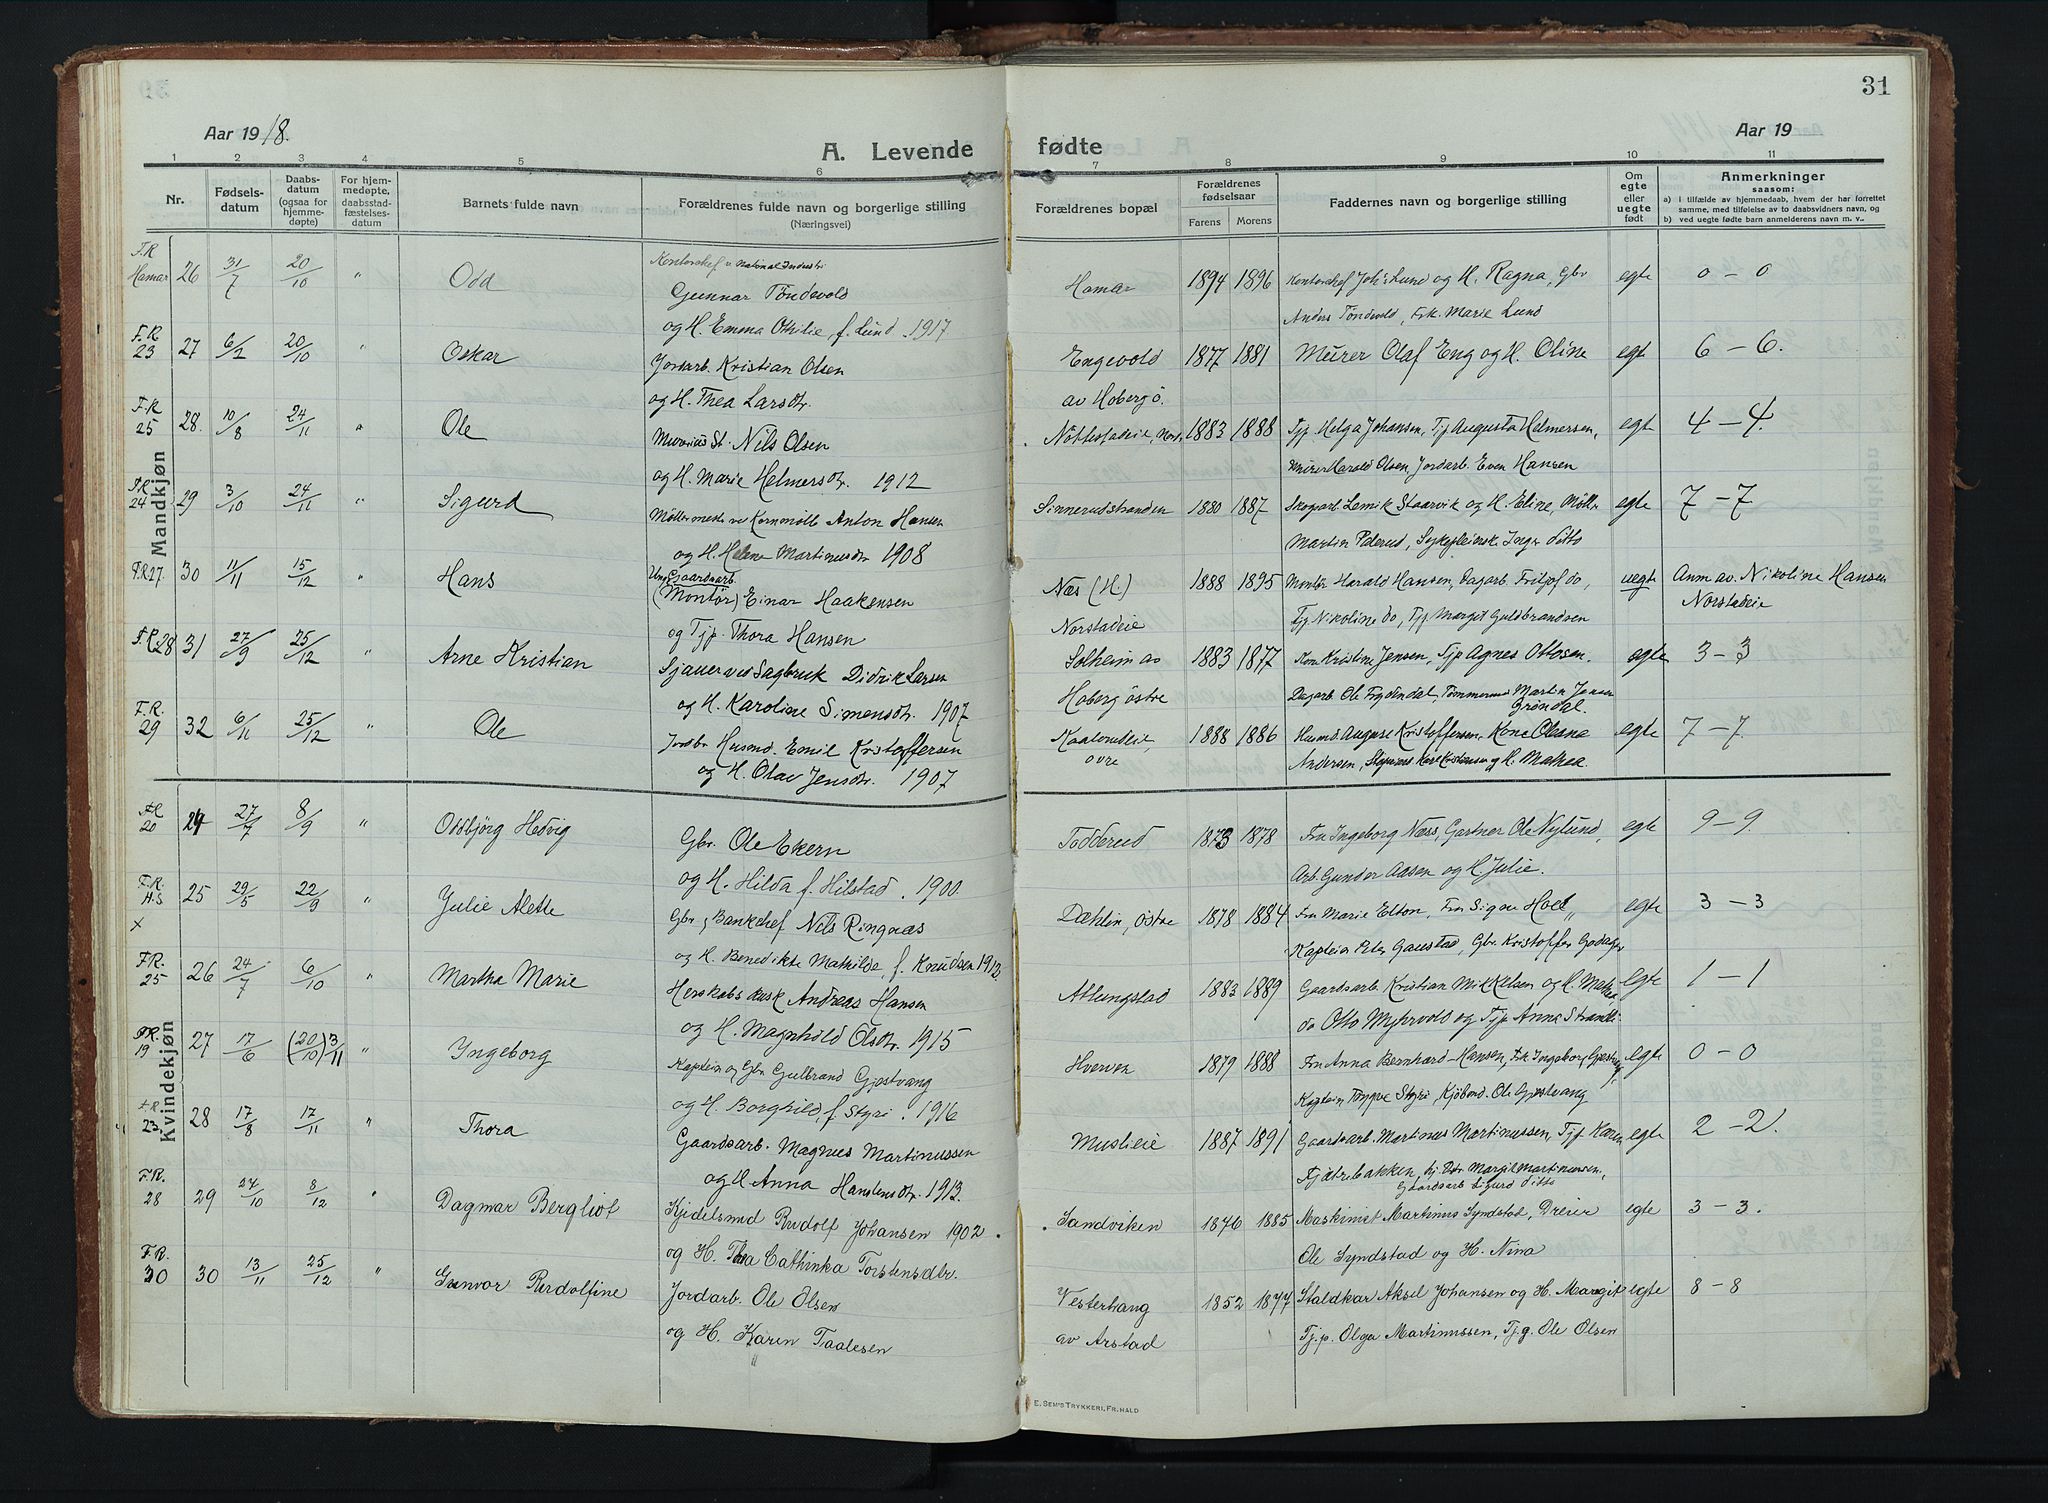 31
Aar 1918.
A. Levende fødte
Aar 19
1 2 3 4 5 6 7 8 9 10 11
Nr.
Fødsels-
datum
Daabs-
datum
(ogsaa for
hjemme-
døpte)
For hjem-
medøpte,
daabsstad-
fæstelses-
datum
Barnets fulde navn
Forældrenes fulde navn og borgerlige stilling
(Næringsvei)
Forældrenes bopæl
Forældrenes
fødselsaar
Farens Morens
Faddernes navn og borgerlige stilling
Om
egte
eller
uegte
født
Anmerkninger
saasom:
a) i tilfælde av hjemmedaab, hvem der har forrettet
samme, med tilføielse av to daabsvidners navn, og
b) ved uegte fødte barn anmelderens navn m. v..
Mandkjøn
F.R Hamar 26 31/7 20/10 " Odd
Gunnar Töndevold
og H. Emma Othilie, f. Lund. 1917
Hamar 1894 1896 Kontorchef Johs Lund og H. Ragna, Gbr egte 0 – 0
Anders Töndevold, Frk. Marie Lund
F.R 23 27 6/2 20/10 " Oskar Jordarb. Kristian Olsen
og H. Thea Larsdtr.
Engevold 1877 1881 Murer Olaf Eng og H. Oline egte 6 – 6.
av Hoberg ö.
F.R 25 28. 10/8 24/11 " Ole Nils Olsen
og H. Marie Helmersdtr. 1912
1883 1888 Tjp. Helga Johansen, Tjp Augusta Helmersen, egte 4 – 4.
Murer Harald Olsen, Jordarb. Even Hansen
F.R 24 29 3/10 24/11 " Sigurd Möllermester ved Kornmölle Anton Hansen
og H. Helene Martinusdtr 1908
Sinnerudstranden 1880 1887 Skogarb. Staarvik og H. Eline, Möller egte 7 – 7
Martin Pderud, Inger ditto
F.R 27. 30 11/11 15/12 " Hans Ung. Gaardsarb.
(Montör) Einar Haakensen
og Tjp. Thora Hansen
Næs (H) 1888 1895 Montör Harald Hansen, Dagarb. Fritjof do, uegte Anm av. Nikoline Hansen
Norstadeie Tjp Nikoline do, Tjp. Margit Guldbrandsen Norstadeie
F.R 28 31 27/9 25/12 " Arne Kristian Sjauer ved Sagbruk Didrik Larsen
og H. Karoline Simensdtr. 1907
Solheim av 1883 1877 Kone Kristine Jensen, Tjp Agnes Ottosen. egte 3 – 3
Hoberg östre Dagarb. Ole Frydendal, Tömmerm. Martin Jensen
Gröndal.
F.R. 29 32 6/11 25/12 " Ole Jordbr Husmd. Emil Kristoffersen
og H. Olav Jensdtr. 1907
övre 1888 1886 Husmd August Kristoffersen, Kone Olesne egte 7 – 7.
Andersen, Karl Kristiansen og H. Mathea.
Kvindekjøn
F.R 20 24 27/7 8/9 " Oddbjörg Hedvig Gbr. Ole Ekern
og H. Hilda f. Hilstad. 1900
Todderud 1873 1878 Fru Ingeborg Næss, Gartner Ole Nylund, egte 9 – 9.
Arb. Gunder Aasen og H Julie.
F.R. H.S x 25 29/5 22/9 " Julie Alette Gbr. og Bankchef Nils Ringnæs
og H. Benedikte Mathilde, f. Knudsen 1912
Dæhlin, östre 1878 1884 Fru Marie Elton, Fru Signe Hoel, egte 3 – 3
Kaptein Peter Gaustad, Gbr. Kristoffer Godager
F.R. 25 26 24/7 6/10 " Martha Marie Herskabskusk Andreas Hansen
og H. Magnhild Olsdtr. 1915
Atlungstad 1883 1889 Gaardsarb. Kristian Mikkelsen og H. Mathea, egte 1 – 1
do Otto Myhrvold og Tjp Anna Strandli
F.R. 19 27 17/6 (20/10) 3/11 " Ingeborg Kaptein og Gbr Gulbrand Gjestvang
og H. Borghild, f. Styri. 1916
Hverven 1879 1888 Fru Anna Bernhard-Hansen, Frk Ingeborg Gjestvang, egte 0 – 0
Kaptein Styri, Kjöbmd. Ole Gjestvang
F.R. 23. 28 17/8 17/11 " Thora Gaardsarb. Magnus Martinussen
og H Anna Hansensdtr. 1913.
Muslieie 1887 1891 Gaardsarb. Martinus Martinussen, Tjp Karen egte 2 – 2.
Fjætrebakken, Margit Martinussen,
Gaardsarb Sigurd ditto
F.R. 28 29 24/10 8/12 " Dagmar Bergliot Kjedelsmed Rudolf Johansen 1902.
og H. Thea Cathinka Torstensdtr.
Sandviken 1876 1885 Maskinist Martinus Syndstad, Dreier egte 3 – 3.
Ole Syndstad og H. Nina
F.R. 30 30 13/11 25/12 " Gunvor Rudolfine Jordarb. Ole Olsen
og H. Karen Taalesen
Vesterhang 1852 1877 Staldkar Aksel Johansen og H. Margit egte 8 – 8
av Arstad Tj.p. Olga Martinussen, Tj.g. Ole Olsen
E. SEM'S TRYKKERI, FR.HALD